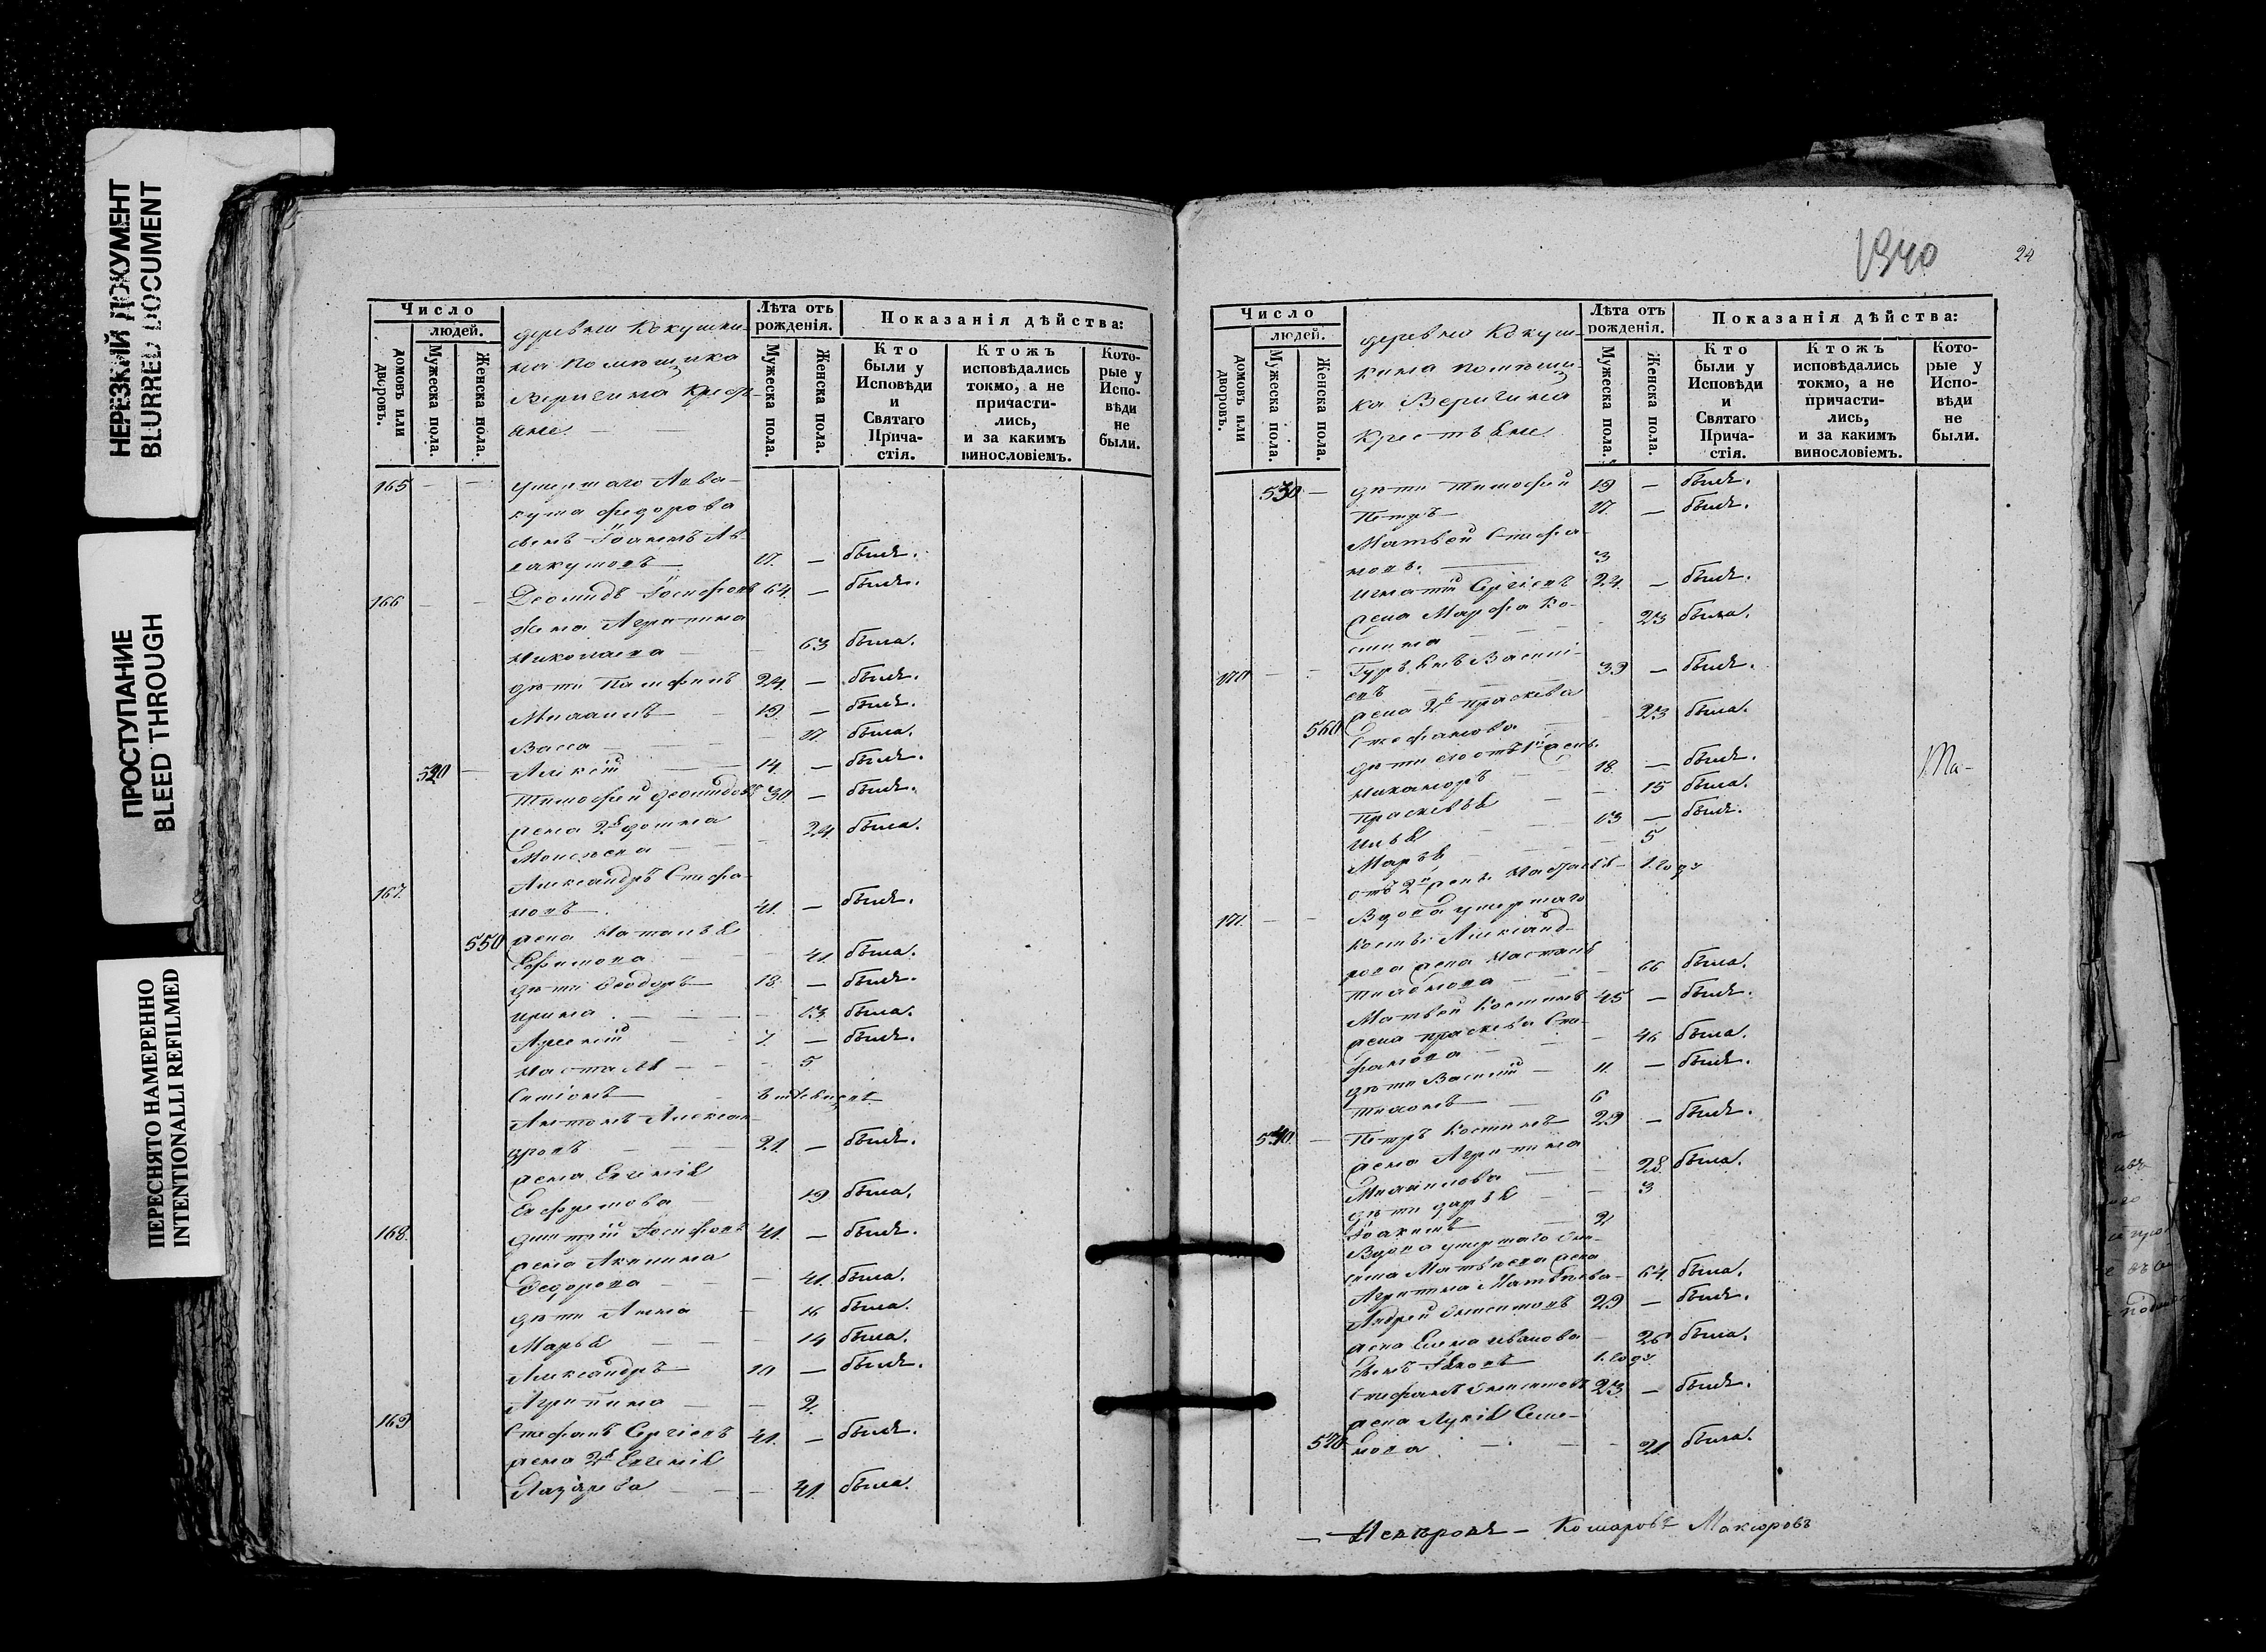 НЕРЕЗКИЙ ДОКУМЕНТ
BLURRED DOCUMENT
ПРОСТУПАНИЕ
BLEED THROUGH
ПЕРЕСНЯТО НАМЕРЕННО
INTENTIONALLI REFILMED
Число
людей.
домовъ или дворовъ.
Мужеска пола.
Женска пола.
деревни Кокушки-
на помѣщика
Веригина Крестъ-
яне.
Лѣта отъ
рожденія.
Мужеска пола.
Женска пола.
Показанія дѣйства:
Кто
были у
Исповѣди
и
Святаго
Прича-
стія.
Ктожъ
исповѣдались
токмо, а не
причасти-
лись,
и за какимъ
винословіемъ.
Кото-
рые у
Испо-
вѣди
не
были.
165 умершаго Авва-
кума Федорова
сынъ Іоаннъ Ав-
вакумовъ — былъ.
166 Діомидъ Іосифовъ 64 — былъ.
Жена Агрипина
Николаева 63 была.
дѣти Памфилъ 24 — былъ.
Михаилъ 19 — былъ.
Васса была.
520 Алексій 14 — былъ.
Тимофей Діомидовъ 30 — былъ.
жена
Моисеева 24 была.
167 Александръ Стефа-
новъ 41 — былъ.
550 жена Наталья
Ефимова 41 была.
дѣти Феодоръ 18 — былъ.
Ирина 13 была.
Арсеній 7 — былъ.
Настасья 5
Симеонъ
Антонъ Алексан-
дровъ 21 — былъ.
жена Евгенія
Ефремова 19 была.
168. Димитрій Іосифовъ 41 — былъ.
жена Акилина
Федорова 41 была.
дѣти Анна 16 была.
Марья 14 была.
Александръ 10 — былъ.
Агрипина 2.
169 Стефанъ Сергіевъ 41 — былъ.
жена 2я Евгенія
Лазарева 41 была.
1340
24
Число
людей.
домовъ или дворовъ.
Мужеска пола.
Женска пола.
деревни Кокуш-
кина помѣщи-
ка Веригина
Крестьяне
Лѣта отъ
рожденія.
Мужеска пола.
Женска пола.
Показанія дѣйства:
Кто
были у
Исповѣди
и
Святаго
Прича-
стія.
Ктожъ
исповѣдались
токмо, а не
причасти-
лись,
и за какимъ
винословіемъ.
Кото-
рые у
Испо-
вѣди
не
были.
530 — дѣти Тимофей 19 — былъ.
Петръ — былъ.
Матвей Стефа-
новъ. 3
Игнатій Сергіевъ 24 — былъ.
жена Марфа Ко-
стина 23 была.
170 Гурьянъ Васильи-
евъ 39 — былъ.
жена 2я Праскева
560 Стефанова 23 была.
дѣти его отъ 1й жены
Никаноръ 18 — былъ.
Праскевья 15 была.
Илья 13 — былъ.
Марья 5
отъ 2й жены Настасья 1. годъ
171. Вдова умершаго
Косты Александ-
рова жена Настасья
66 была.
Матвей Костинъ 45 — былъ.
жена Праскева Сте-
фанова 46 была.
дѣти Василій 11 — былъ.
Тихонъ 6
540 Петръ Костинъ 29 — былъ.
жена Агрипина
Михайлова 28 была.
дѣти Дарья 3
Іоакимъ 2
Вдова умершаго Они-
сима Матвѣева жена
Агрипина Матвѣева 64 была.
Андрей Онисимовъ 29 — былъ.
жена Елена Иванова 26 была.
сынъ Іаковъ 1. годъ
Стефанъ Онисимовъ 23 — былъ.
жена Лукія Семе-
570 нова 21 была.
Ма-
Макаровъ